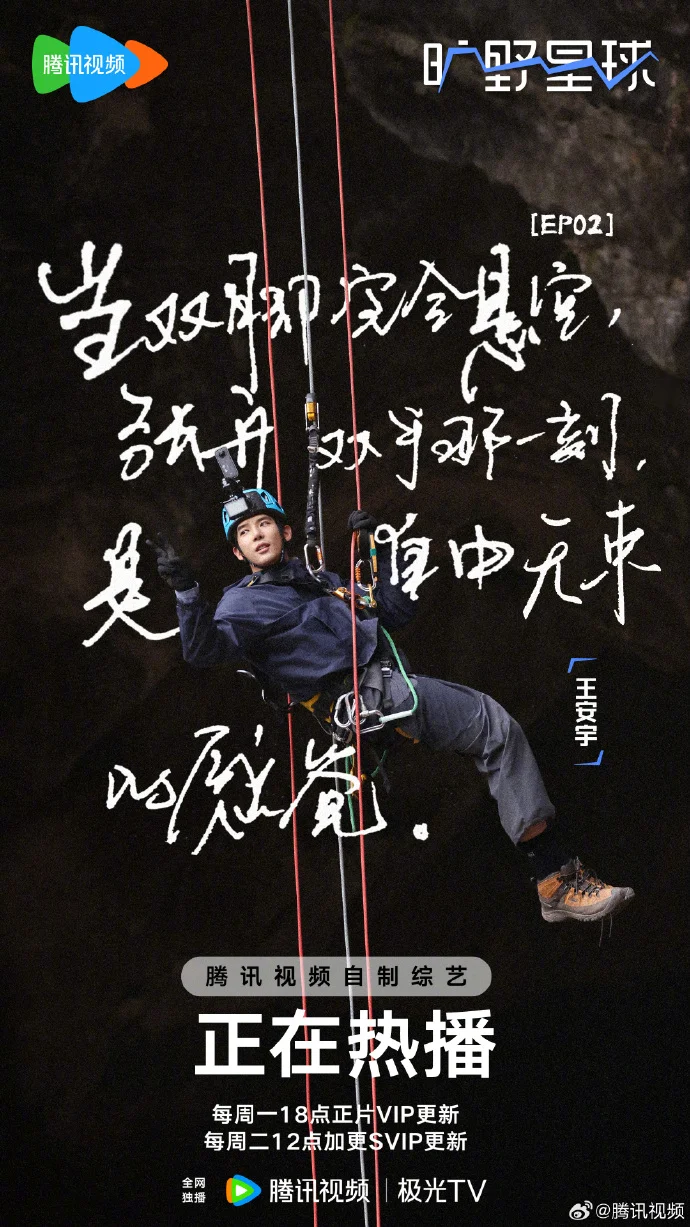 腾讯视频
旷野星球
[EP02]
当双脚完全悬空，
张开双手那一刻，
是自由无束
的感觉。
王安宇
腾讯视频自制综艺
正在热播
每周一18点正片VIP更新
每周二12点加更SVIP更新
全网
独播
腾讯视频|极光TV
@腾讯视频